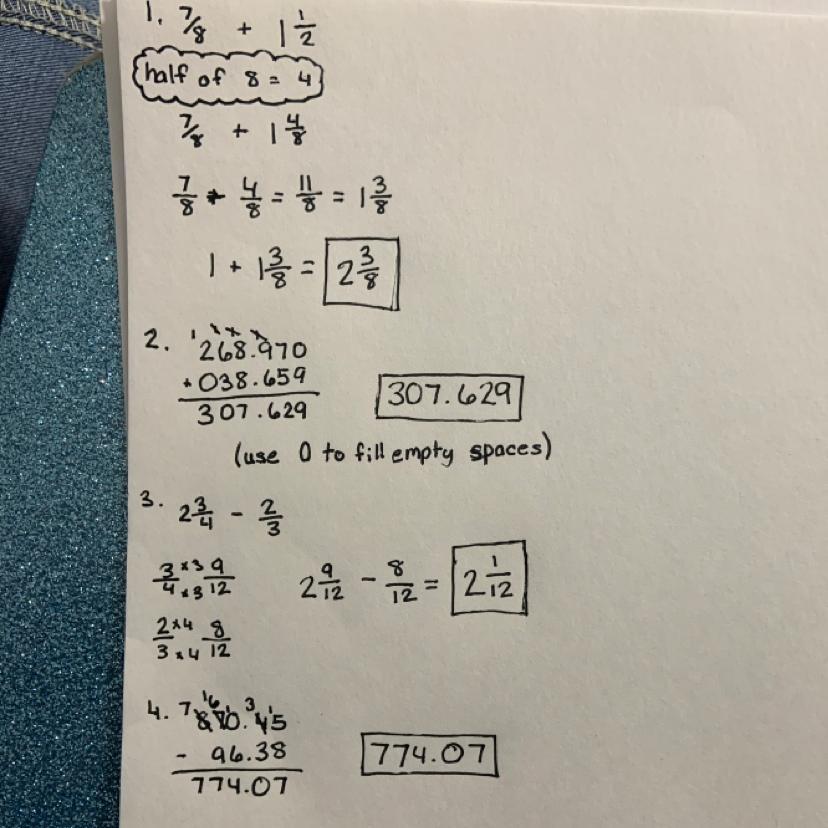 1. 7/8 + 1 1/2
half of 8 = 4
7/8 + 1 4/8
7/8 + 4/8 = 11/8 = 1 3/8
1 + 1 3/8 = 2 3/8
2. 268.970
+ 038.659
307.629 307.629
(use 0 to fill empty spaces)
3. 2 3/4 - 2/3
3/4 ×3 ×3 9/12 2 9/12 - 8/12 = 2 1/12
2/3 ×4 ×4 8/12
4. 870.45
- 96.38
774.07 774.07